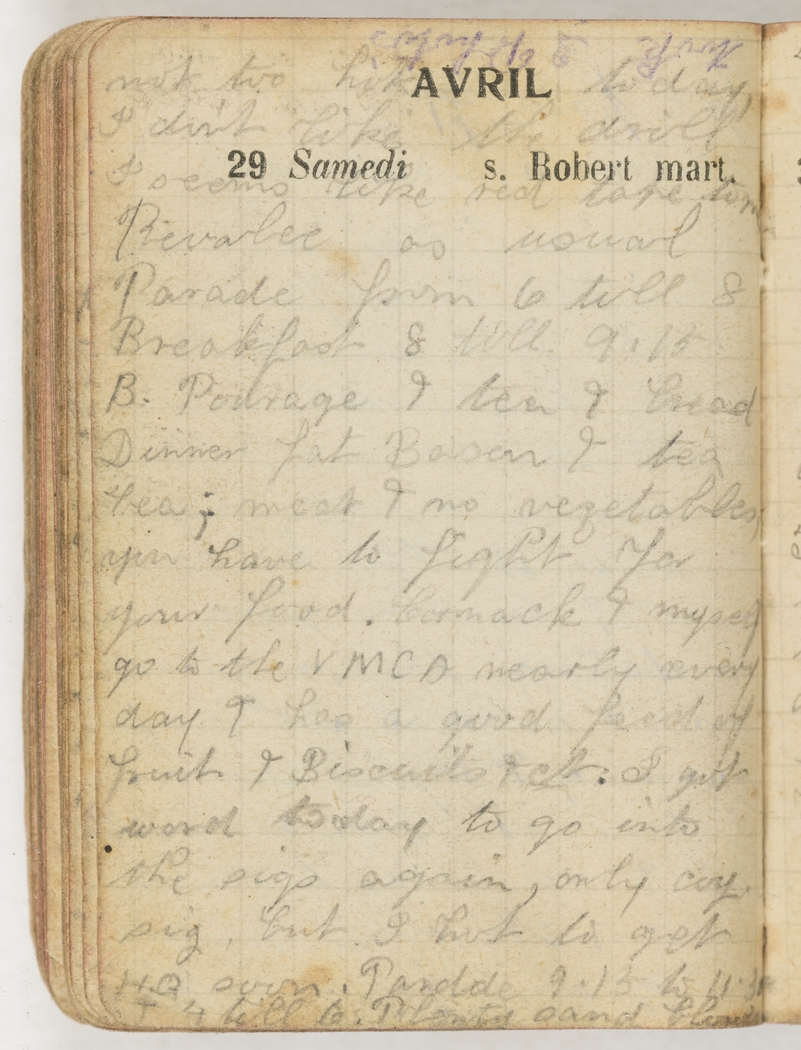 not too hot today
AVRIL
I don't like the drill
29 Samedi s. Robert mart.
I seems like red tape to m
Revalee as usual
Parade from 6 till 8
Breakfast 8 till 9.15
B. Pourage & tea & bread
Dinner fat Bacon & tea
tea; meat & no vegetables,
you have to fight for
your food. Cormack & myself
go to the YMCA nearly every
day & has a good feed of
fruit & Biscuits & ct. I got
word today to go into
the sigs again, only coy.
sig, but I hot to get
H.Q soon. Paradde 9.15 to 11.30
& 4 till 6. Plenty sand